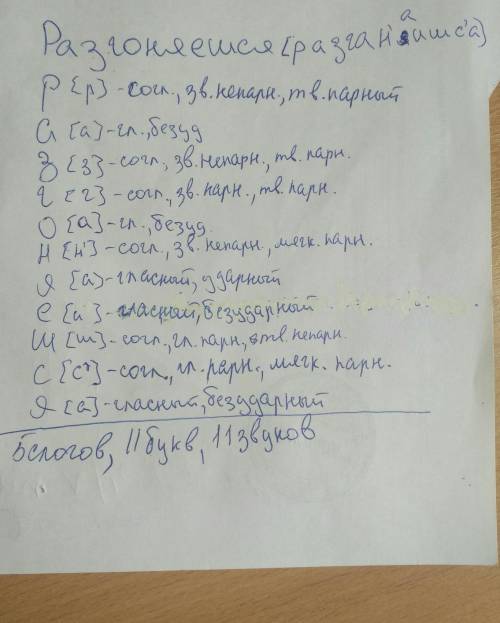 Разгоняешся [разган'аишс'а]
Р [р] - согл., зв. непарн., тв. парный
А [а] - гл., безуд
З [з] - согл., зв. непарн., тв. парн.
Г [г] - согл., зв. парн., тв. парн.
О [а] - гл., безуд.
Н [н'] - согл., зв. непарн., мягк. парн.
Я [а] - гласный, ударный
Е [и] - гласный, безударный
Ш [ш] - согл., гл. парн., тв. непарн.
С [с'] - согл., гл. парн., мягк. парн.
Я [а] - гласный, безударный
5 слогов, 11 букв, 11 звуков